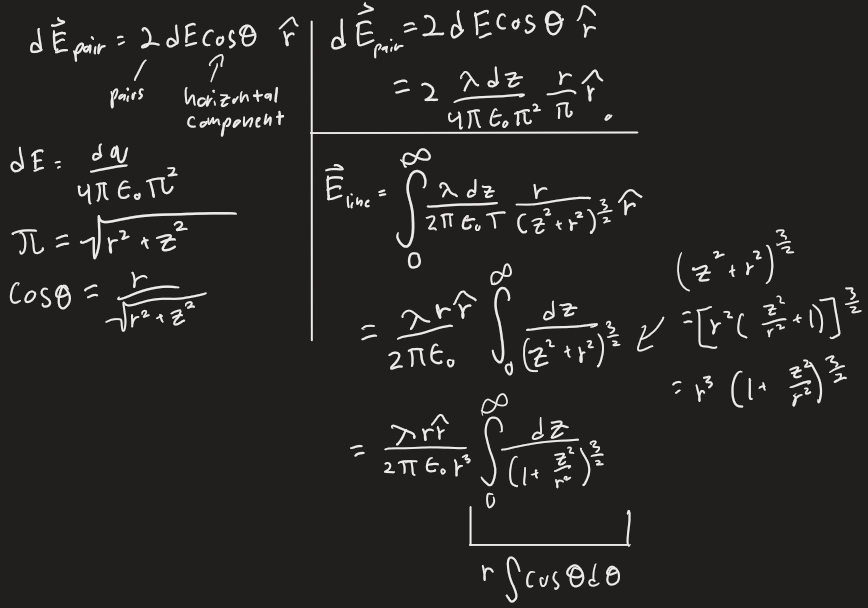 dE⃗pair = 2dEcosθ r̂
pairs
horizontal
component
dE = dq/(4πϵ₀π²)
π = √(r² + z²)
cosθ = r/√(r² + z²)
dE⃗pair = 2dEcosθ r̂
= 2 λdz/(4πϵ₀π²) r/π r̂.
E⃗line = ∫₀^∞ λdz/(2πϵ₀π) r/(z² + r²)^(3/2) r̂
= λrr̂/(2πϵ₀) ∫₀^∞ dz/(z² + r²)^(3/2)
(z² + r²)^(3/2)
= [r²(z²/r² + 1)]^(3/2)
= r³(1 + z²/r²)^(3/2)
= λrr̂/(2πϵ₀r³) ∫₀^∞ dz/(1 + z²/r²)^(3/2)
r∫cosθdθ